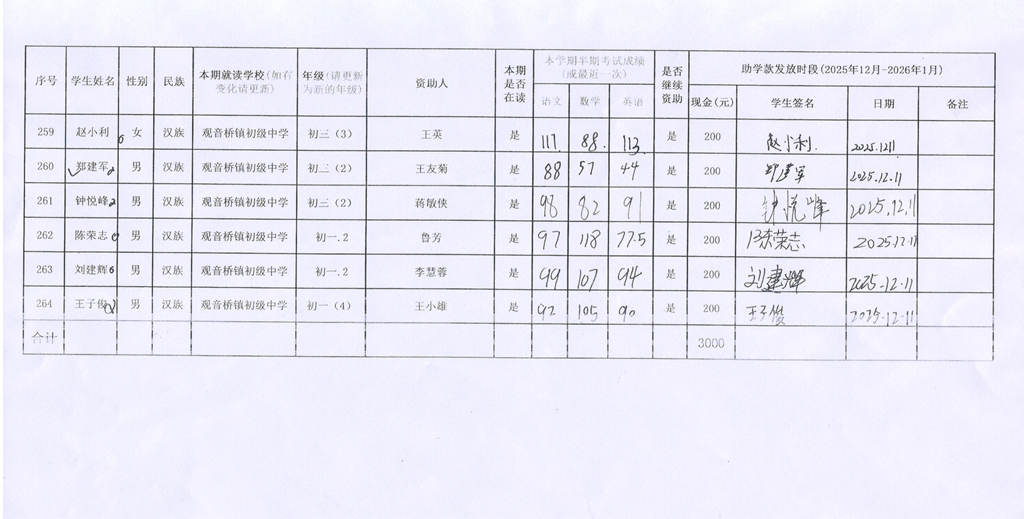 序号 学生姓名 性别 民族 本期就读学校(如有变化请更新) 年级(请更新为新的年级) 资助人 本期是否在读 本学期半期考试成绩(或最近一次) 是否继续资助 助学款发放时段(2025年12月-2026年1月)
语文 数学 英语 现金(元) 学生签名 日期 备注
259 赵小利 女 汉族 观音桥镇初级中学 初三（3） 王英 是 117. 88. 113. 是 200 赵小利. 2025.12.11
260 郑建军 男 汉族 观音桥镇初级中学 初三（2） 王友菊 是 88 57 44 是 200 郑建军 2025.12.11
261 钟悦峰 男 汉族 观音桥镇初级中学 初三（2） 蒋敏侠 是 98 82 91 是 200 钟悦峰 2025.12.11
262 陈荣志 男 汉族 观音桥镇初级中学 初一.2 鲁芳 是 97 118 77.5 是 200 陈荣志 2025.12.11
263 刘建辉 男 汉族 观音桥镇初级中学 初一.2 李慧蓉 是 99 107 94 是 200 刘建辉 2025.12.11
264 王子俊 男 汉族 观音桥镇初级中学 初一（4） 王小雄 是 92 105 90 是 200 王子俊 2025.12.11
合计 3000